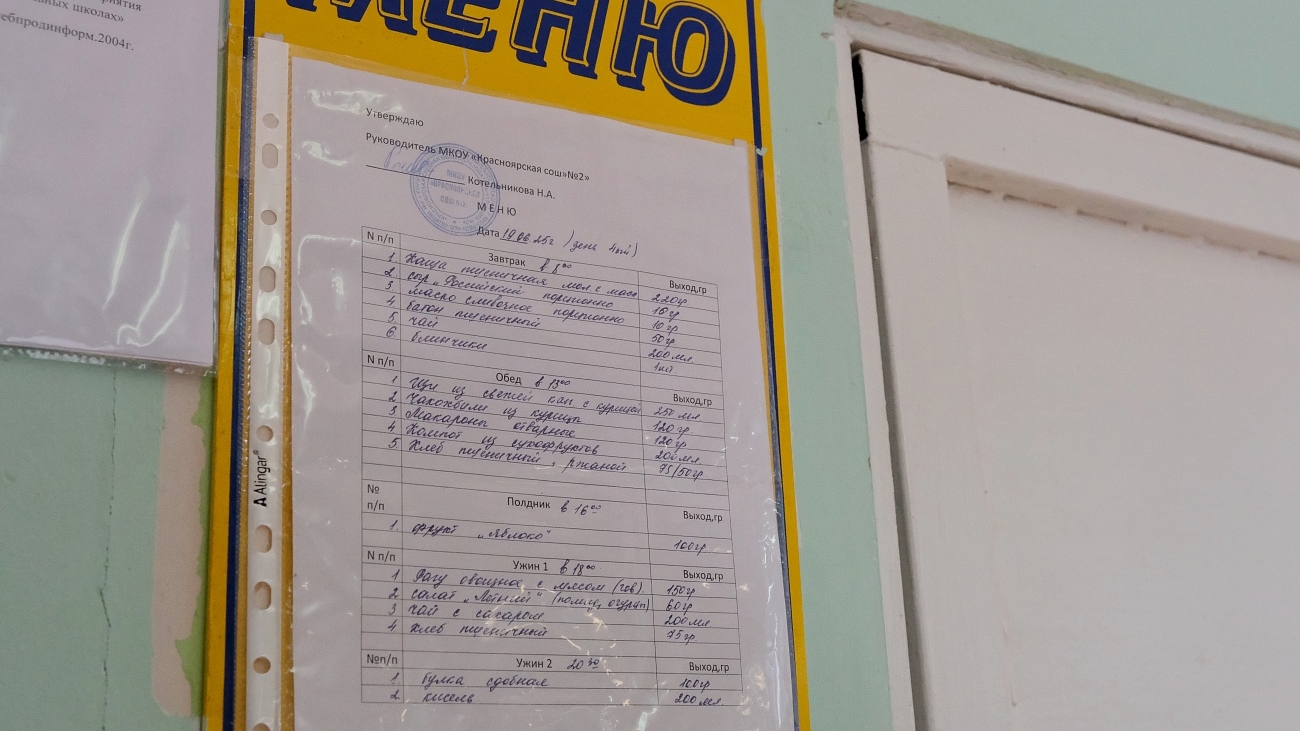 приятия
ьных школах»
ебпродинформ.2004г.
МЕНЮ
Утверждаю
Руководитель МКОУ «Красноярская сош»№2»
Котельникова Н.А.
М Е Н Ю
Дата 19.06.25г (день 4ый)
N п/п Завтрак в 8 00 Выход,гр
1. Каша пшеничная мол с масл 220гр
2. сыр „Российский порционно 10гр
3 масло сливочное порционно 10 гр
4 батон пшеничный 50гр
5. чай 200 мл
6 блинчики 1шт.
N п/п Обед в 13 00 Выход,гр
1 Щи из свежей кап с курицей 250 мл
2 Чахохбили из курицы 120 гр
3 Макароны отварные 120 гр
4 Компот из сухофруктов 200 мл
5. Хлеб пшеничный, ржаной 75/50гр
№ п/п Полдник в 16 00 Выход,гр
1. фрукт „Яблоко" 100гр
N п/п Ужин 1 в 18 00 Выход,гр
1 Рагу овощное с мясом (гов) 150гр
2 салат „Летний" (помид, огурцы) 60гр
3 чай с сахаром 200 мл
4 хлеб пшеничный 75 гр
№п/п Ужин 2 20 30 Выход,гр
1. булка сдобная 100гр
2. кисель 200 мл.
Alingar®